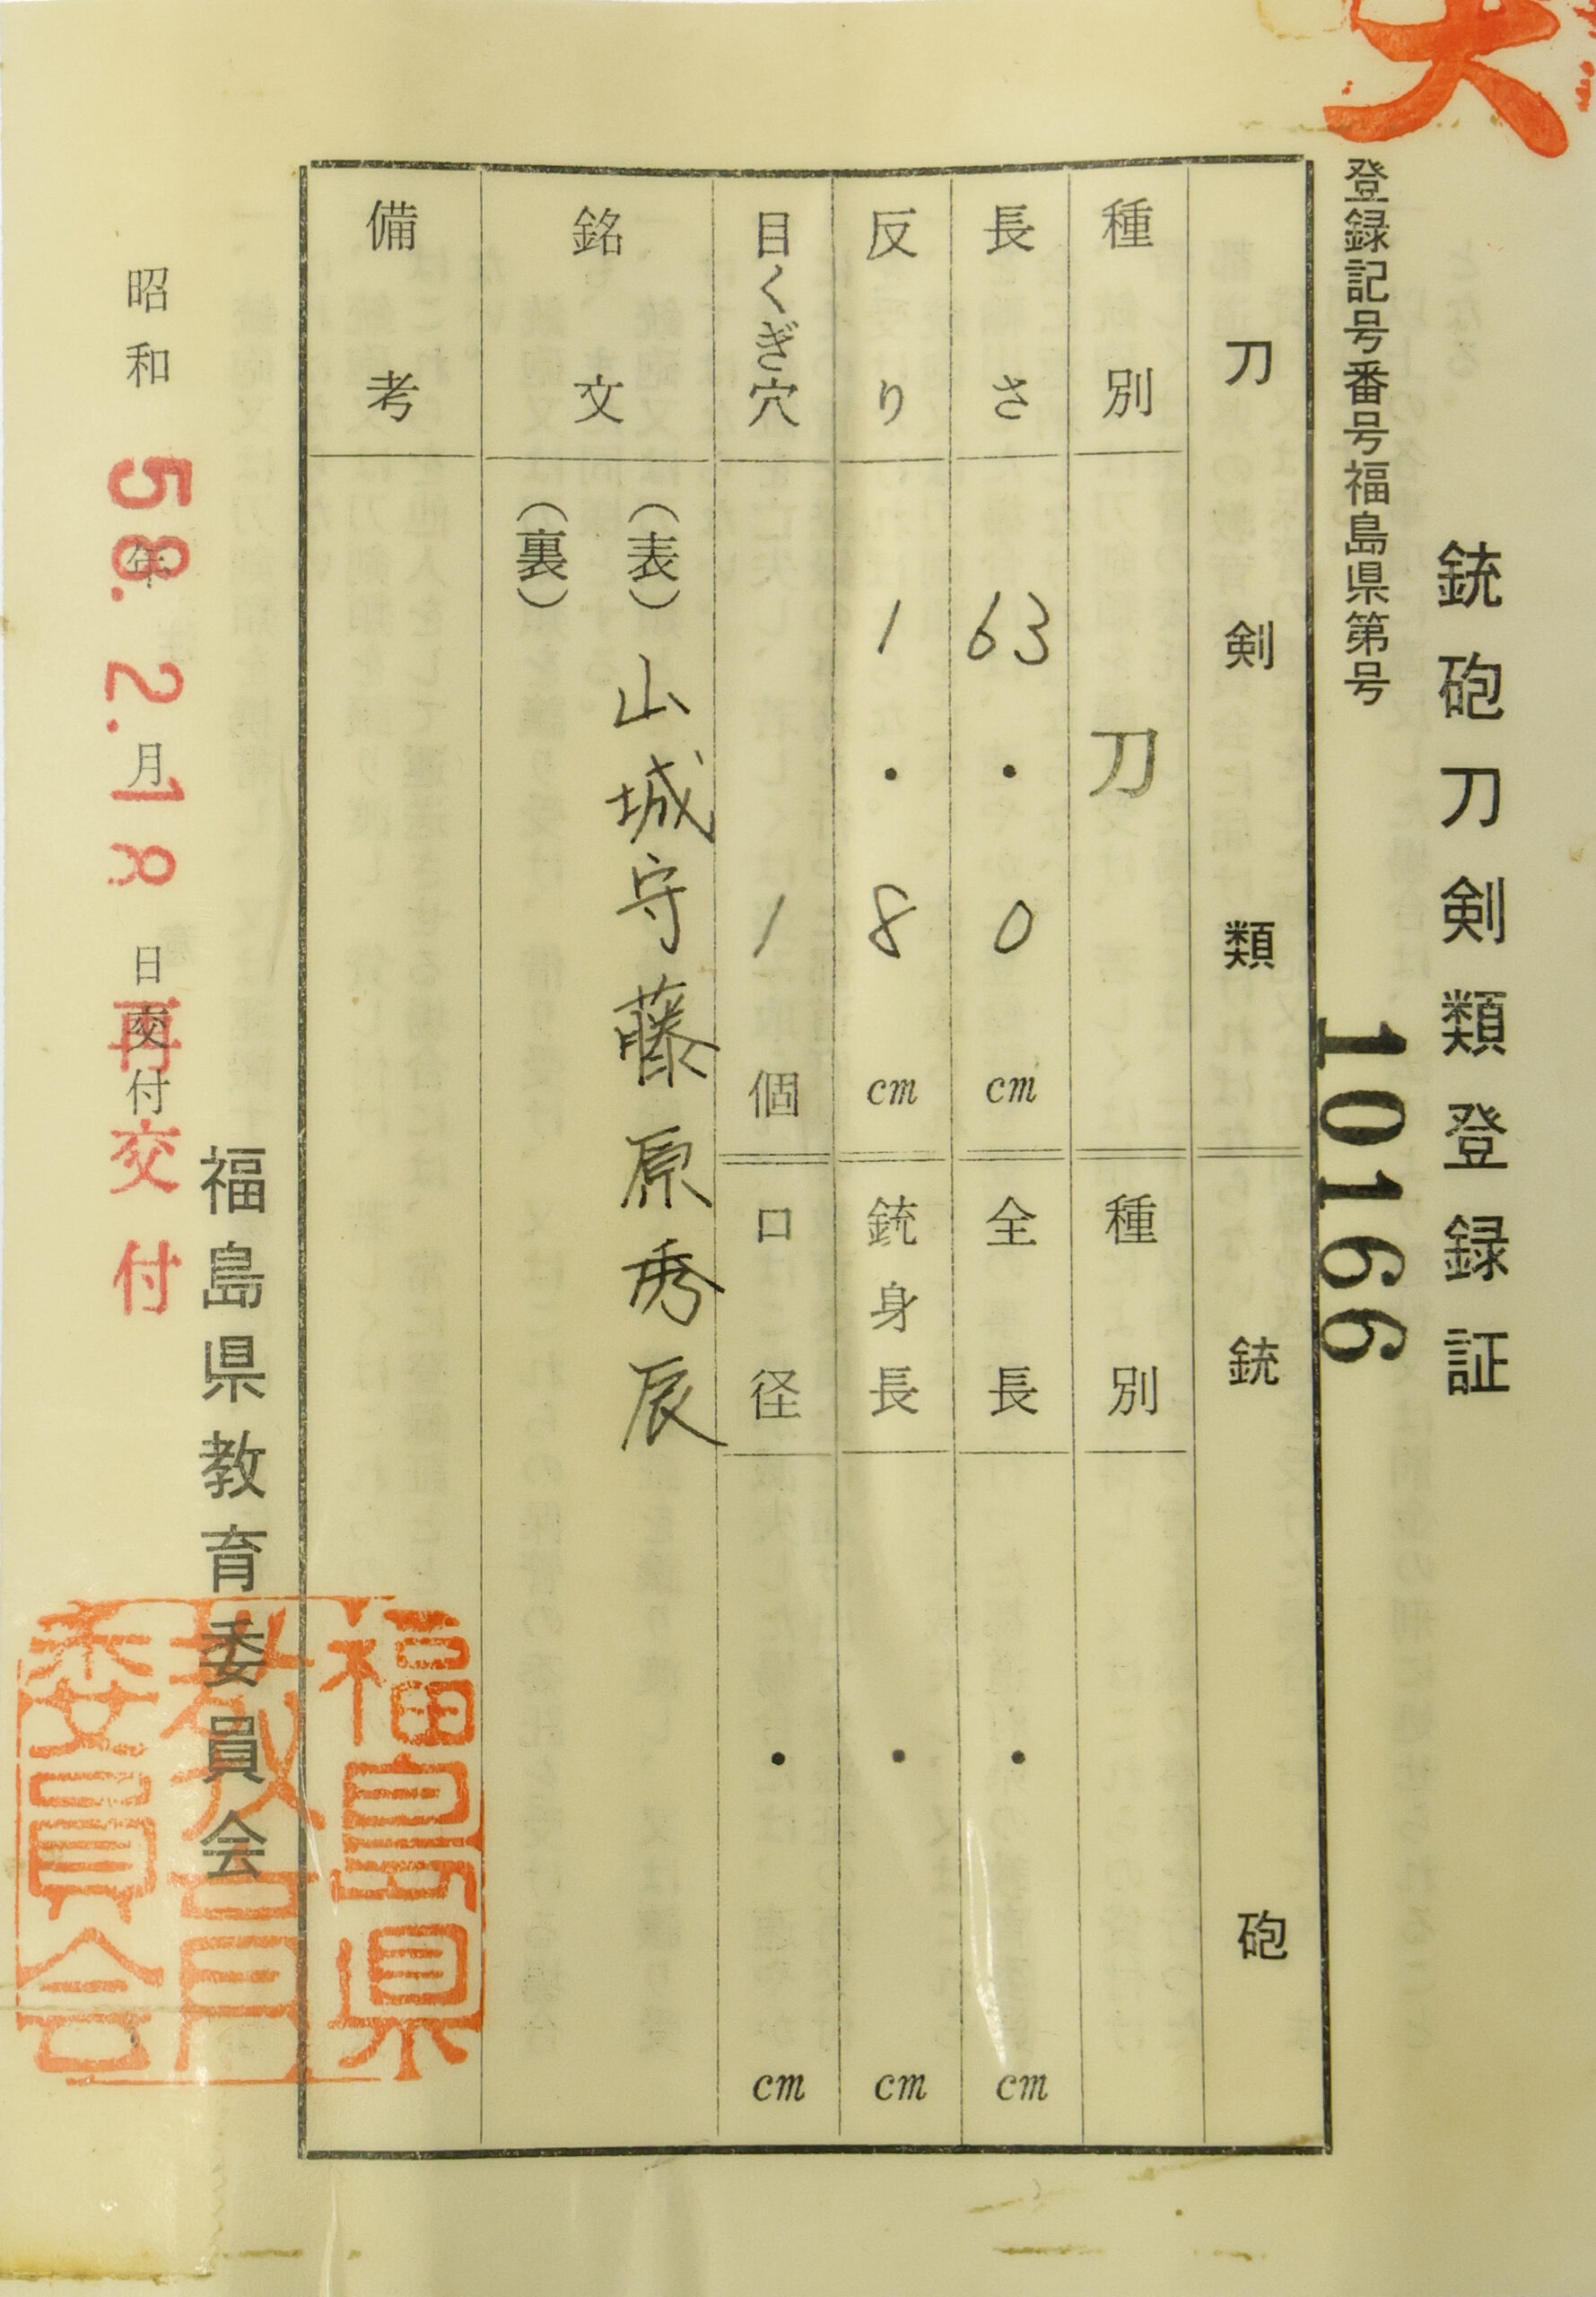 銃砲刀剣類登録証
登録記号番号福島県第号
10166
刀剣類
銃砲
種別
刀
種別
長さ
63・0cm
全長
・cm
反り
1・8cm
銃身長
・cm
目くぎ穴
1個
口径
・cm
銘文
(表)山城守藤原秀辰
(裏)
備考
福島県教育委員会
福島県
教育
委員会
昭和年月日交付
58.2.18
再交付